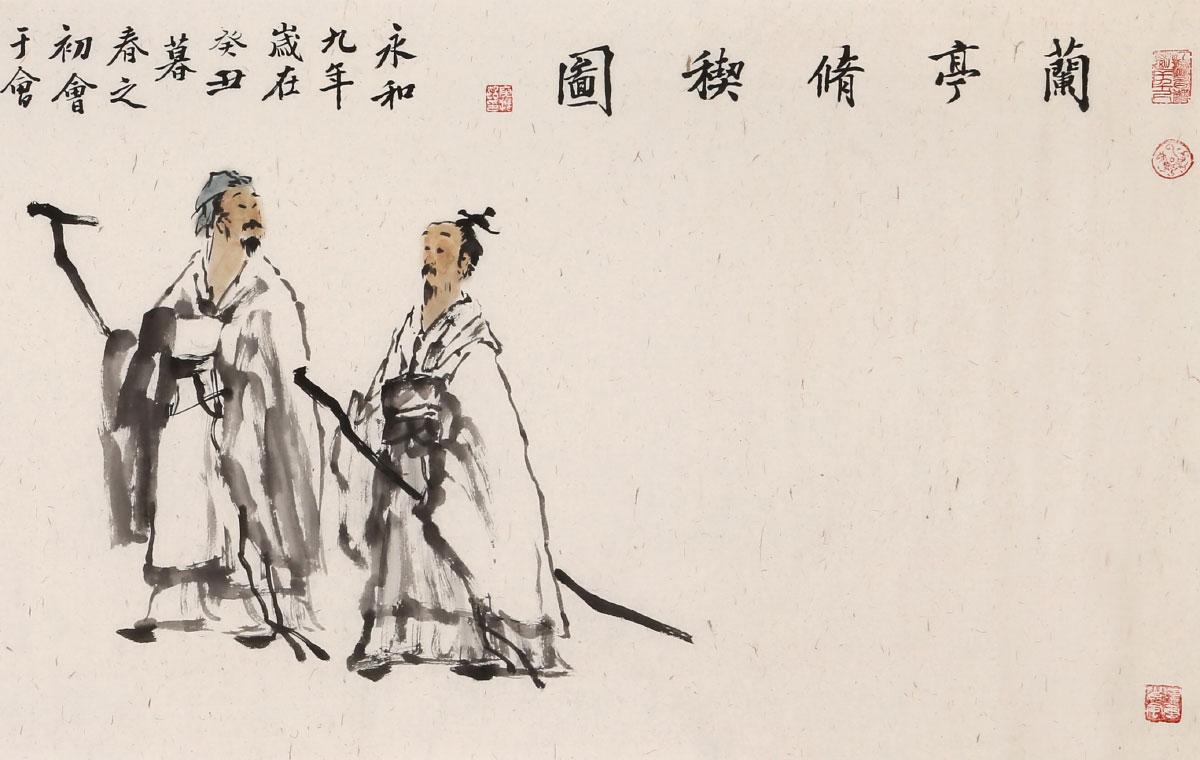 蘭亭脩稧圖
永和
九年
歲在
癸丑
暮
春之
初會
于會